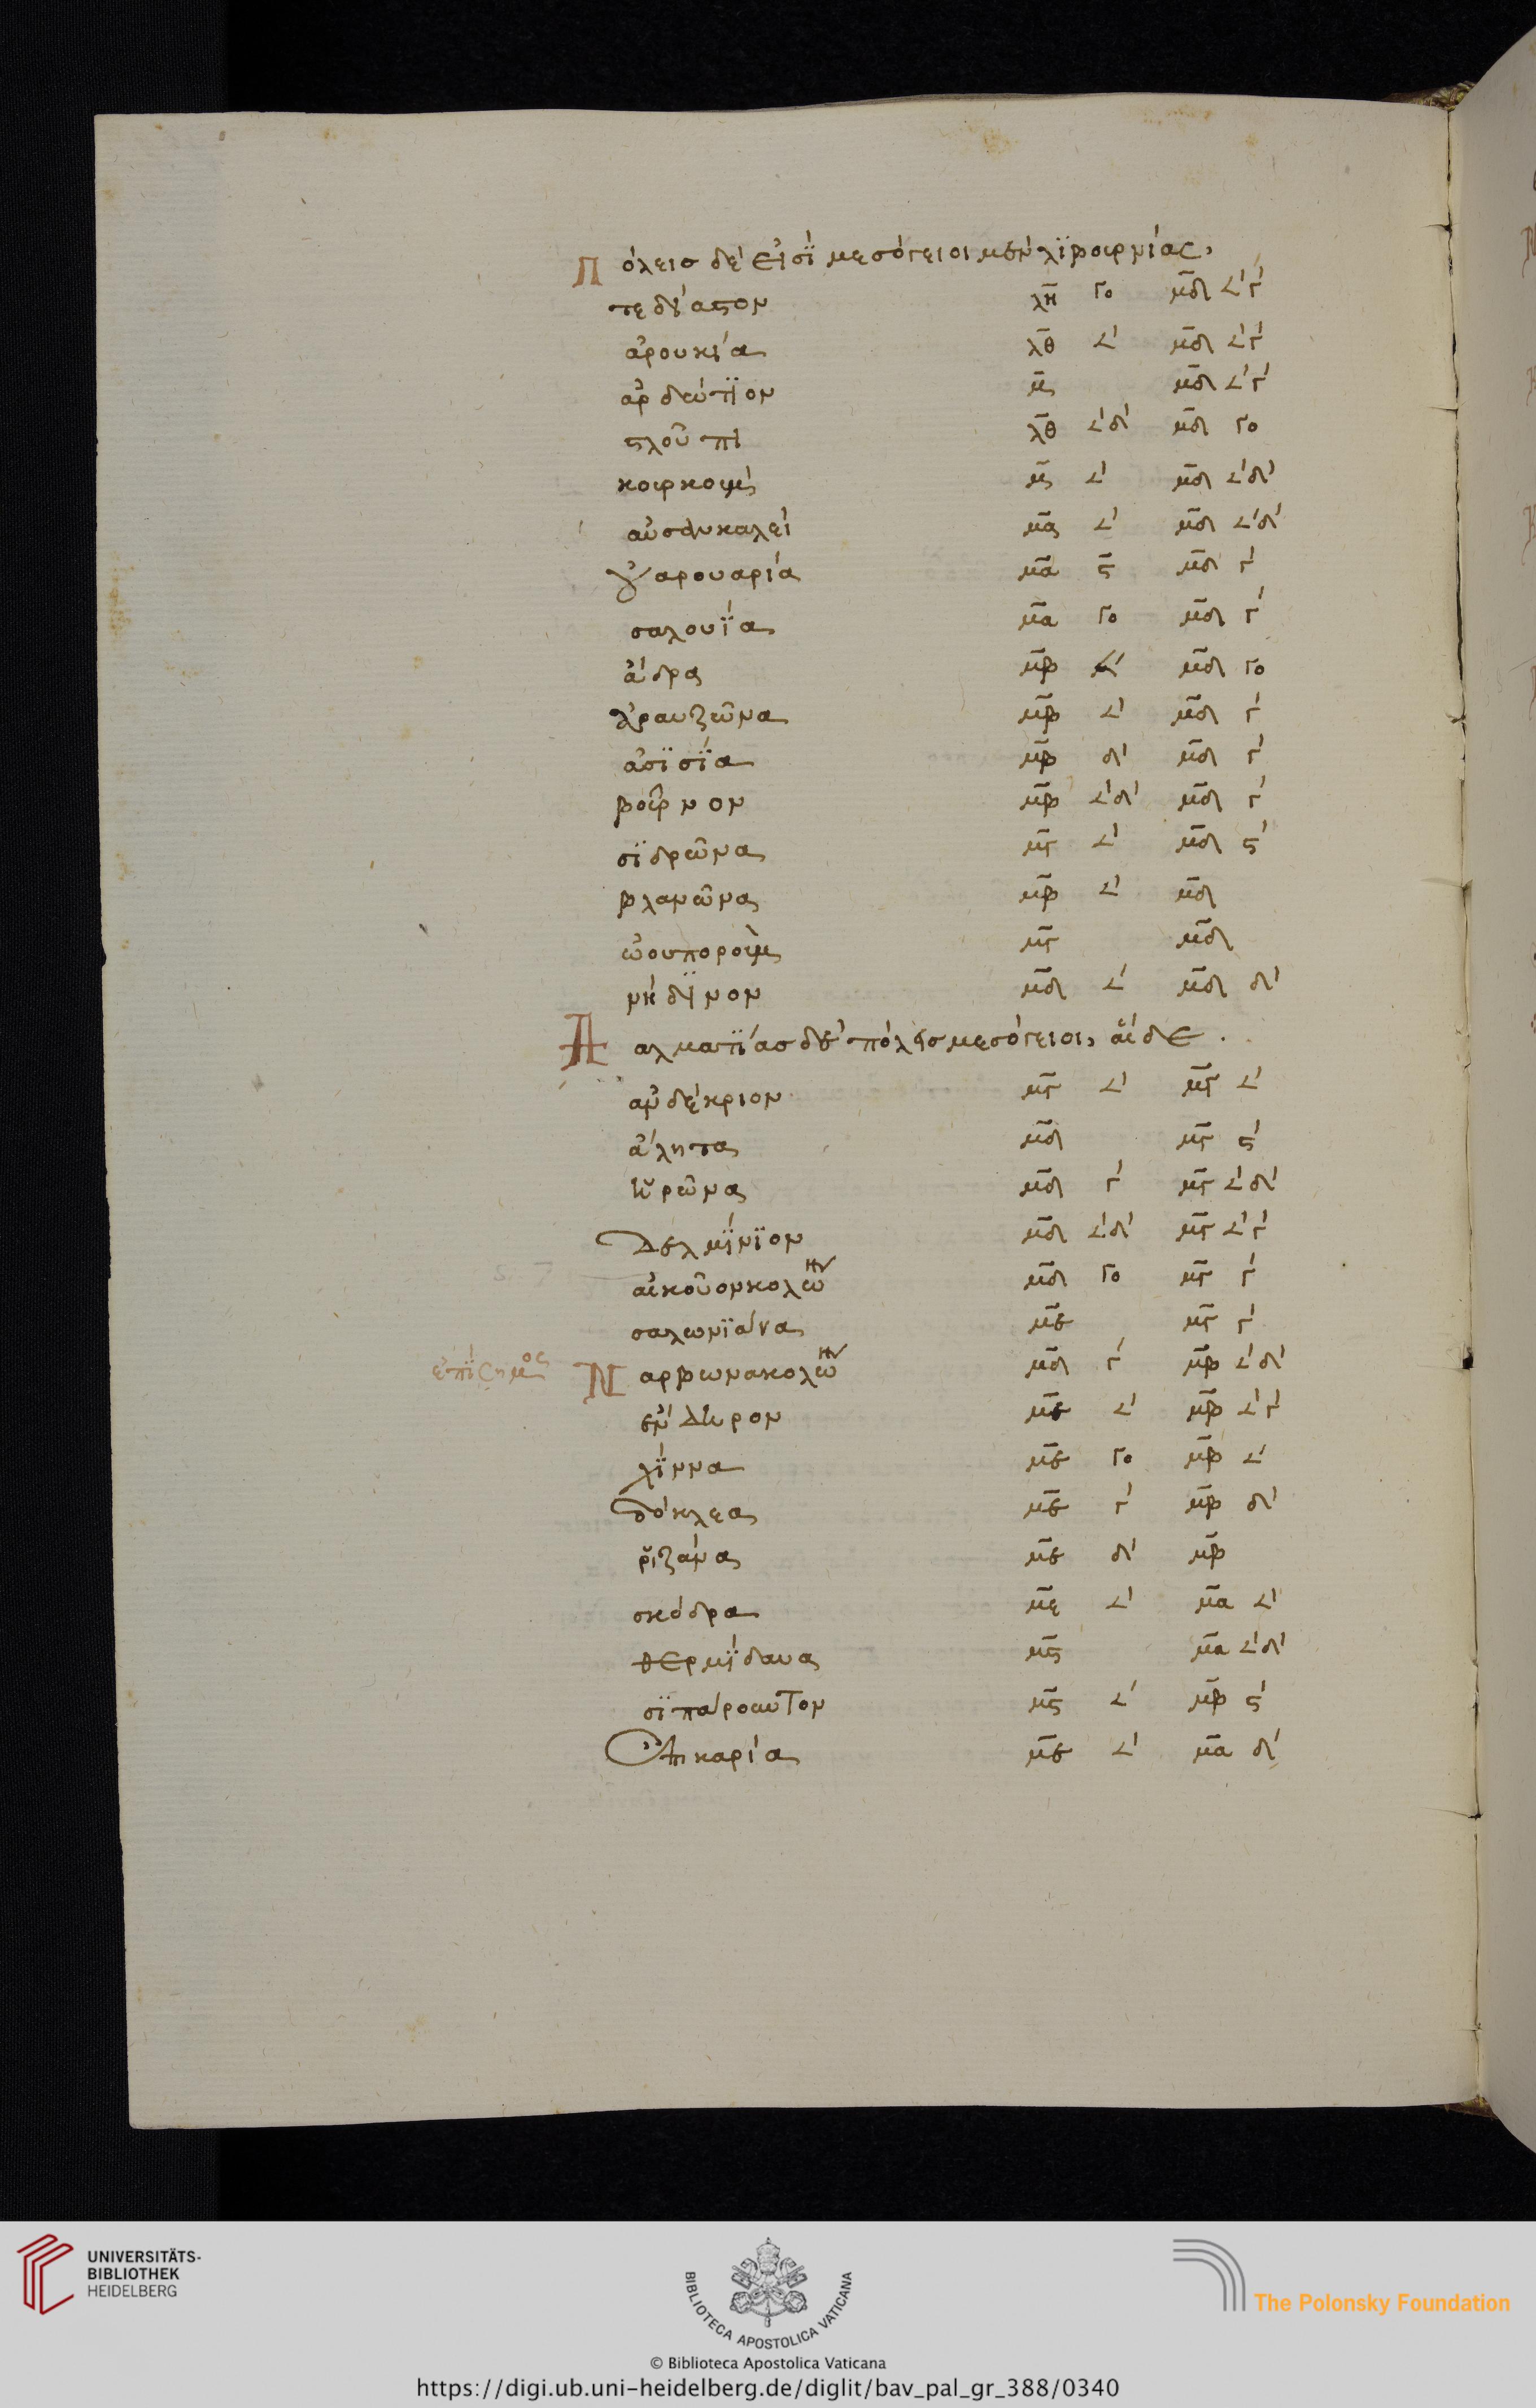 Πόλεισ δέ εἰσΐ μεσόγειοι μὲν λϊβουρνίας,
τεδΐαστον λη γο μδ ∠΄γ΄
ἀρουκία λθ ∠΄ μδ ∠΄γ΄
ἀρδεώτϊον μ μδ ∠΄γ΄
στλοῦπι λθ ∠΄δ΄ μδ γο
κουρκουμ μ ∠΄ μδ ∠΄δ΄
αὐσαγκαλεί μα ∠΄ μδ ∠΄δ΄
οὐαρουαρία μα ς μδ γ΄
σαλουΐα μα γο μδ γ΄
ἄδρα μβ ∠΄ μδ γο
ἀραυζῶνα μβ ∠΄ μδ γ΄
ἀσϊσΐα μβ δ΄ μδ γ΄
βοῦρνον μβ ∠΄δ΄ μδ γ΄
σϊδρῶνα μγ ∠΄ μδ ς΄
βλανῶνα μβ ∠΄ μδ
ὠουπορουμ μγ μδ
νήδϊνον μδ ∠΄ μδ δ΄
Δαλματΐασ δὲ πόλεισ μεσόγειοι, αἵδε.
ἀνδέκριον μγ ∠΄ μγ ∠΄
ἄλητα μδ μγ ς΄
ἡρῶνα μδ γ΄ μγ ∠΄δ΄
δελμΐνϊον μδ ∠΄δ΄ μγ ∠΄γ΄
αἰκοῦον κολων μδ γο μγ γ΄
σαλωνϊάνα με μγ γ΄
ἐπΐσημος Ναρβωνα κολων μδ γ΄ μβ ∠΄δ΄
ἐνδηρον με ∠΄ μβ ∠΄γ΄
χΐννα με γο μβ ∠΄
δόκλεα με γ΄ μβ δ΄
ῥιζάνα με δ΄ μβ
σκόδρα με ∠΄ μα ∠΄
θερμΐδαυα μς μα ∠΄δ΄
σϊπάρουντον μς ∠΄ μβ ς΄
ἐπικαρία με ∠΄ μα δ΄
UNIVERSITÄTS-
BIBLIOTHEK
HEIDELBERG
BIBLIOTECA APOSTOLICA VATICANA
The Polonsky Foundation
© Biblioteca Apostolica Vaticana
https://digi.ub.uni-heidelberg.de/diglit/bav_pal_gr_388/0340